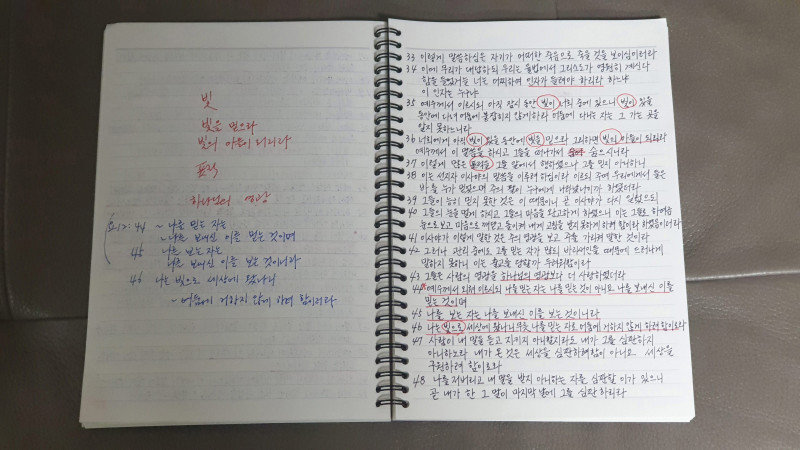 빛
빛을 믿으라
빛의 아들이 되리라
표적
하나님의 영광
요12:44 ~ 나를 믿는 자는
~ 나를 보내신 이를 믿는 것이며
45 나를 보는 자는
나를 보내신 이를 보는 것이니라
46 나는 빛으로 세상에 왔나니
~ 어둠에 거하지 않게 하려 함이로라
33 이렇게 말씀하심은 자기가 어떠한 죽음으로 죽을 것을 보이심이러라
34 이에 무리가 대답하되 우리는 율법에서 그리스도가 영원히 계신다
함을 들었거늘 너는 어찌하여 인자가 들려야 하리라 하느냐
이 인자는 누구냐
35 예수께서 이르시되 아직 잠시 동안 빛이 너희 중에 있으니 빛이 있을
동안에 다녀 어둠에 붙잡히지 않게 하라 어둠에 다니는 자는 그 가는 곳을
알지 못하느니라
36 너희에게 아직 빛이 있을 동안에 빛을 믿으라 그리하면 빛의 아들이 되리라
예수께서 이 말씀을 하시고 그들을 떠나가서 숨으시니라
37 이렇게 많은 표적을 그들 앞에서 행하셨으나 그를 믿지 아니하니
38 이는 선지자 이사야의 말씀을 이루려 하심이라 이르되 주여 우리에게서 들은
바를 누가 믿었으며 주의 팔이 누구에게 나타났나이까 하였더라
39 그들이 능히 믿지 못한 것은 이 때문이니 곧 이사야가 다시 일렀으되
40 그들의 눈을 멀게 하시고 그들의 마음을 완고하게 하셨으니 이는 그들로 하여금
눈으로 보고 마음으로 깨닫고 돌이켜 내게 고침을 받지 못하게 하려 함이라 하였음이더라
41 이사야가 이렇게 말한 것은 주의 영광을 보고 주를 가리켜 말한 것이라
42 그러나 관리 중에도 그를 믿는 자가 많되 바리새인들 때문에 드러나게
말하지 못하니 이는 출교를 당할까 두려워함이라
43 그들은 사람의 영광을 하나님의 영광보다 더 사랑하였더라
44 예수께서 외쳐 이르시되 나를 믿는 자는 나를 믿는 것이 아니요 나를 보내신 이를
믿는 것이며
45 나를 보는 자는 나를 보내신 이를 보는 것이니라
46 나는 빛으로 세상에 왔나니 무릇 나를 믿는 자로 어둠에 거하지 않게 하려 함이로라
47 사람이 내 말을 듣고 지키지 아니할지라도 내가 그를 심판하지
아니하노라 내가 온 것은 세상을 심판하려 함이 아니요 세상을
구원하려 함이로라
48 나를 저버리고 내 말을 받지 아니하는 자를 심판할 이가 있으니
곧 내가 한 그 말이 마지막 날에 그를 심판하리라